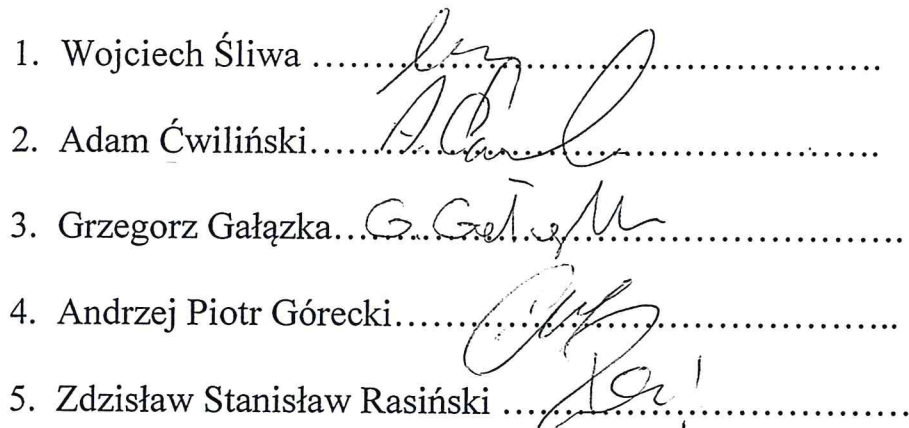 1. Wojciech Śliwa ...........................................
2. Adam Ćwiliński...........................................
3. Grzegorz Gałązka...G. Gał.................................
4. Andrzej Piotr Górecki.....................................
5. Zdzisław Stanisław Rasiński ..............................